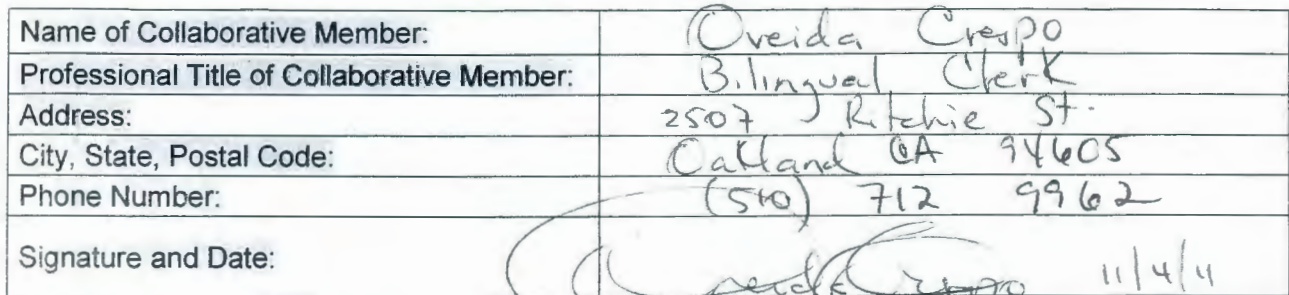 Name of Collaborative Member: Oveida Crespo
Professional Title of Collaborative Member: Bilingual Clerk
Address: 2507 Ritchie St.
City, State, Postal Code: Oakland CA 94605
Phone Number: (510) 712 9962
Signature and Date: Oveida Crespo 11/4/11